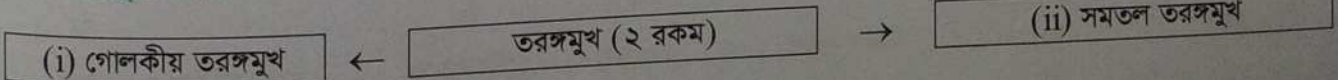 (i) গোলকীয় তরঙ্গমুখ ← তরঙ্গমুখ (২ রকম) → (ii) সমতল তরঙ্গমুখ